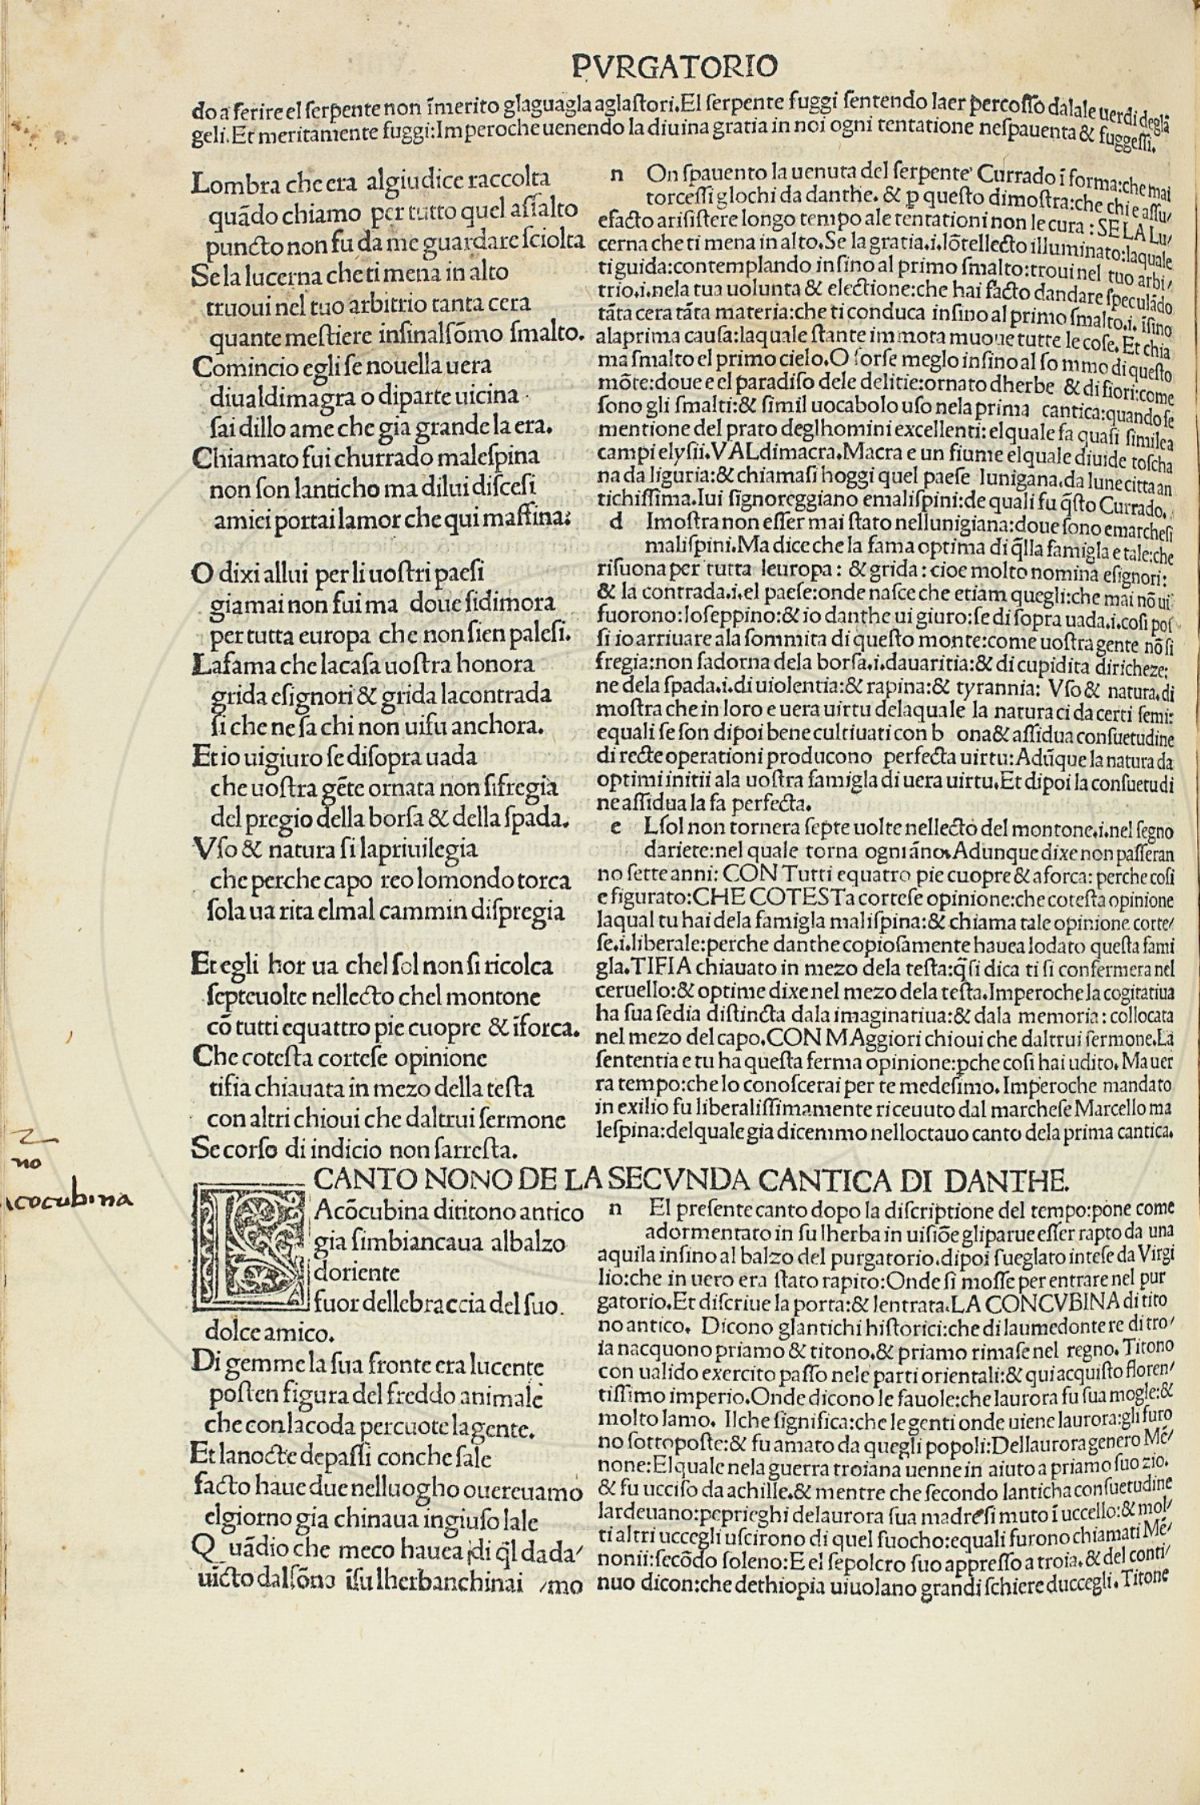 PVRGATORIO
do a ferire el serpente non ĩmerito glaguagla aglastori.El serpente fuggi sentendo laer percosso dalale uerdi deglã
geli.Et meritamente fuggi:Imperoche uenendo la diuina gratia in noi ogni tentatione nespauenta & fuggessi.
Lombra che era algiudice raccolta
quãdo chiamo per tutto quel assalto
puncto non fu da me guardare sciolta
Se la lucerna che ti mena in alto
truoui nel tuo arbitrio tanta cera
quante mestiere insinalsõmo smalto.
Comincio egli se nouella uera
diualdimagra o diparte uicina
sai dillo ame che gia grande la era.
Chiamato fui churrado malespina
non son lanticho ma dilui discesi
amiei portai lamor che qui maffina:
O dixi allui per li uostri paesi
giamai non fui ma doue sidimora
per tutta europa che non sien palesi.
Lafama che lacasa uostra honora
grida esignori & grida lacontrada
si che ne sa chi non uifu anchora.
Et io uigiuro se disopra uada
che uostra gẽte ornata non sifregia
del pregio della borsa & della spada.
Vso & natura si lapriuilegia
che perche capo reo lomondo torca
sola ua rita elmal cammin dispregia
Et egli hor ua chel sol non si ricolca
septeuolte nellecto chel montone
cõ tutti equattro pie cuopre & ĩforca.
Che cotesta cortese opinione
tifia chiauata in mezo della testa
con altri chioui che daltrui sermone
Se corso di indicio non sarresta.
n On spauento la uenuta del serpente Currado ĩ forma:che mai
torcessi glochi da danthe. & p̱ questo dimostra:che chi e assu/
efacto arisistere longo tempo ale tentationi non le cura : SE LA Lu/
cerna che ti mena in alto.Se la gratia.i.lõtellecto illuminato:laquale
ti guida:contemplando insino al primo smalto:troui nel tuo arbi/
trio.i.nela tua uolunta & electione:che hai facto dandare speculãdo
tãta cera tãta materia:che ti conduca insino al primo smalto.i. ĩsino
alaprima causa:laquale stante immota muoue tutte le cose. Et chia
ma smalto el primo cielo.O forse meglo insino al so mmo di questo
mõte:doue e el paradiso dele delitie:ornato dherbe & di fiori:come
sono gli smalti:& simil uocabolo uso nela prima cantica:quando fe
mentione del prato deglhomini excellenti: elquale fa quasi simile a
campi elysii.VAL dimacra.Macra e un fiume elquale diuide toscha
na da liguria:& chiamasi hoggi quel paese lunigana.da lune citta an
tichissima.Iui signoreggiano emalispini:de quali fu q̃sto Currado.
d Imostra non esser mai stato nellunigiana:doue sono emarchesi
malispini.Ma dice che la fama optima di q̃lla famigla e tale:che
risuona per tutta leuropa : & grida : cioe molto nomina esignori:
& la contrada.i.el paese:onde nasce che etiãm quegli:che mai nõ ui
fuorono:loseppino:& io danthe ui giuro:se di sopra uada.i.cosi pos
si io arriuare ala sommita di questo monte:come uostra gente nõ si
fregia:non sadorna dela borsa.i.dauaritia:& di cupidita diricheze:
ne dela spada.i.di uiolentia:& rapina:& tyrannia: Vso & natura.di
mostra che in loro e uera uirtu delaquale la natura ci da certi semi:
equali se son dipoi bene cultiuati con b ona & assidua consuetudine
di recte operationi producono perfecta uirtu:Adũque la natura da
optimi initii ala uostra famigla di uera uirtu.Et dipoi la consuetudi
ne assidua la fa perfecta.
e Lsol non tornera septe uolte nellecto del montone.i.nel segno
dariete:nel quale torna ogni ãno.Adunque dixe non passeran
no sette anni: CON Tutti equatro pie cuopre & aforca: perche cosi
e figurato:CHE COTESTa cortese opinione:che cotesta opinione
laqual tu hai dela famigla malispina:& chiama tale opinione corte/
se.i.liberale:perche danthe copiosamente hauea lodato questa fami
gla.TIFIA chiauato in mezo dela testa:q̃si dica ti si confermera nel
ceruello:& optime dixe nel mezo dela testa.Imperoche la cogitatiua
ha sua sedia distincta dala imaginatiua:& dala memoria: collocata
nel mezo del capo.CON MAggiori chioui che daltrui sermone.La
sententia e tu ha questa ferma opinione:pche cosi hai udito. Ma uer
ra tempo:che lo conoscerai per te medesimo. Imperoche mandato
in exilio fu liberalissimamente riceuuto dal marchese Marcello ma
lespina:delquale gia dicemmo nelloctauo canto dela prima cantica.
no
acocubina
CANTO NONO DE LA SECVNDA CANTICA DI DANTHE.
L Acõcubina dititono antico
gia simbiancaua albalzo
doriente
fuor dellebraccia del suo
dolce amico.
Di gemme la sua fronte era lucente
posten figura del freddo animale
che con lacoda percuote lagente.
Et lanocte depassi conche sale
facto haue due nelluogho ouereuamo
elgiorno gia chinaua ingiuso lale
Q uãdio che meco hauea di q̃l dada/
uicto dalsõno ĩsu lherbanchinai /mo
n El presente canto dopo la discriptione del tempo:pone come
adormentato in su lherba in uisiõe gliparue esser rapto da una
aquila insino al balzo del purgatorio.dipoi sueglato intese da Virgi
lio:che in uero era stato rapito:Onde si mosse per entrare nel pur
gatorio.Et discriue la porta:& lentrata.LA CONCVBINA di tito
no antico. Dicono glantichi historici:che di laumedonte re di tro/
ia nacquono priamo & titono.& priamo rimase nel regno. Titono
con ualido exercito passo nele parti orientali:& qui acquisto floren/
tissimo imperio.Onde dicono le fauole:che laurora fu sua mogle:&
molto lamo. Ilche significa:che le genti onde uiene laurora:gli furo
no sottoposte:& fu amato da quegli popoli:Dellaurora genero Mẽ/
none:Elquale nela guerra troiana uenne in aiuto a priamo suo zio.
& fu ucciso da achille.& mentre che secondo lanticha consuetudine
lardeuano:peprieghi delaurora sua madre si muto ĩ uccello:& mol/
ti altri uccegli uscirono di quel fuocho:equali furono chiamati Mẽ/
nonii:secõdo soleno:E el sepolcro suo appresso a troia. & del conti/
nuo dicon:che dethiopia uiuolano grandi schiere duccegli.Titone